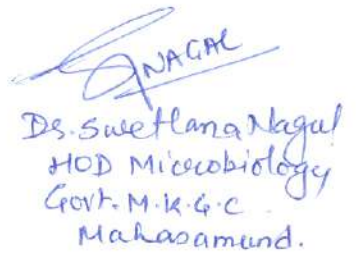 NAGAL
Dr. Swetlana Nagal
HOD Microbiology
Govt. M.K.G.C
Mahasamund.